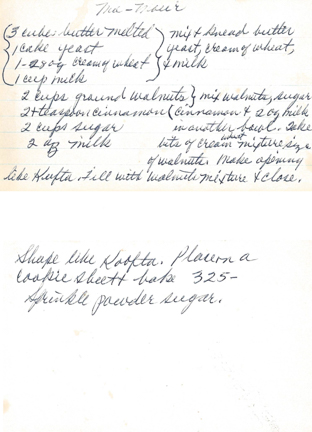 (3 cubes butter melted } mix & knead butter
1 cake yeast yeast, cream of wheat,
1-28 oz cream of wheat & milk
1 cup milk
2 cups ground walnuts } mix walnuts, sugar
2 + teaspoon cinnamon (cinnamon & 2 oz milk
2 cups sugar in another bowl. Take
2 oz milk bite of cream wheat mixture size
of walnuts. Make opening
like Kufta. Fill with walnut mixture & close.
Shape like Koofta. Place on a
cookie sheet & bake 325-
Sprinkle powder sugar.